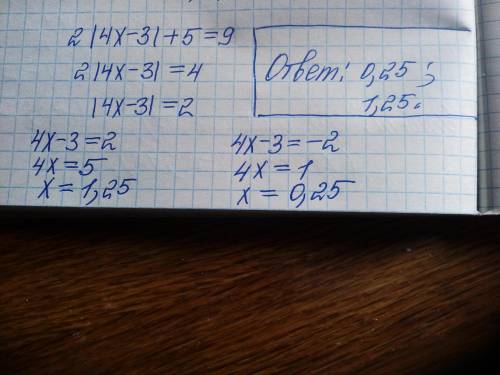 2|4x-3|+5=9
2|4x-3|=4
|4x-3|=2
4x-3=2
4x=5
x=1,25
4x-3=-2
4x=1
x=0,25
Ответ: 0,25;
1,25.